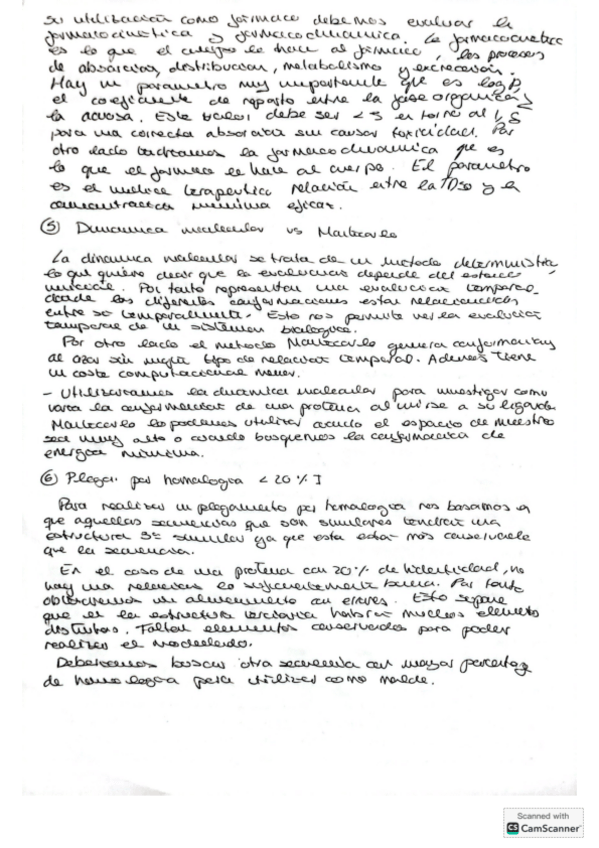 su utilización como fármaco debemos evaluar la
farmacocinética y farmacodinámica. La farmacocinética
es lo que el cuerpo le hace al fármaco, los procesos
de absorción, distribución, metabolismo y excreción.
Hay un parámetro muy importante que es logP,
el coeficiente de reparto entre la fase orgánica y
la acuosa. Este valor debe ser <5 en torno al 1,5
para una correcta absorción sin causar toxicidad. Por
otro lado tendríamos la farmacodinámica que es
lo que el fármaco le hace al cuerpo. El parámetro
es el índice terapéutico relación entre la TD50 y la
concentración mínima eficaz.
⑤ Dinámica molecular vs Montecarlo
La dinámica molecular se trata de un método determinista
lo que quiere decir que la evolución depende del estado
inicial. Por tanto representan una evolución temporal
donde las diferentes conformaciones están relacionadas
entre sí temporalmente. Esto nos permite ver la evolución
temporal de un sistema biológico.
Por otro lado el método Montecarlo genera conformaciones
al azar sin ningún tipo de relación temporal. Además tiene
un coste computacional menor.
- Utilizaríamos la dinámica molecular para investigar como
varía la conformación de una proteína al unirse a su ligando.
Montecarlo lo podemos utilizar cuando el espacio de muestreo
sea muy alto o cuando busquemos la conformación de
energía mínima.
⑥ Plegar por homología <20% I
Para realizar un plegamiento por homología nos basamos en
que aquellas secuencias que son similares tendrán una
estructura 3ª similar ya que esta está más conservada
que la secuencia.
En el caso de una proteína con 20% de identidad, no
hay una relación lo suficientemente buena. Por tanto
obtendremos un alineamiento con errores. Esto supone
que en la estructura terciaria habrá muchos elementos
distintos. Faltan elementos conservados para poder
realizar el modelado.
Deberíamos buscar otra secuencia con mayor porcentaje
de homología para utilizar como molde.
Scanned with
CS CamScanner